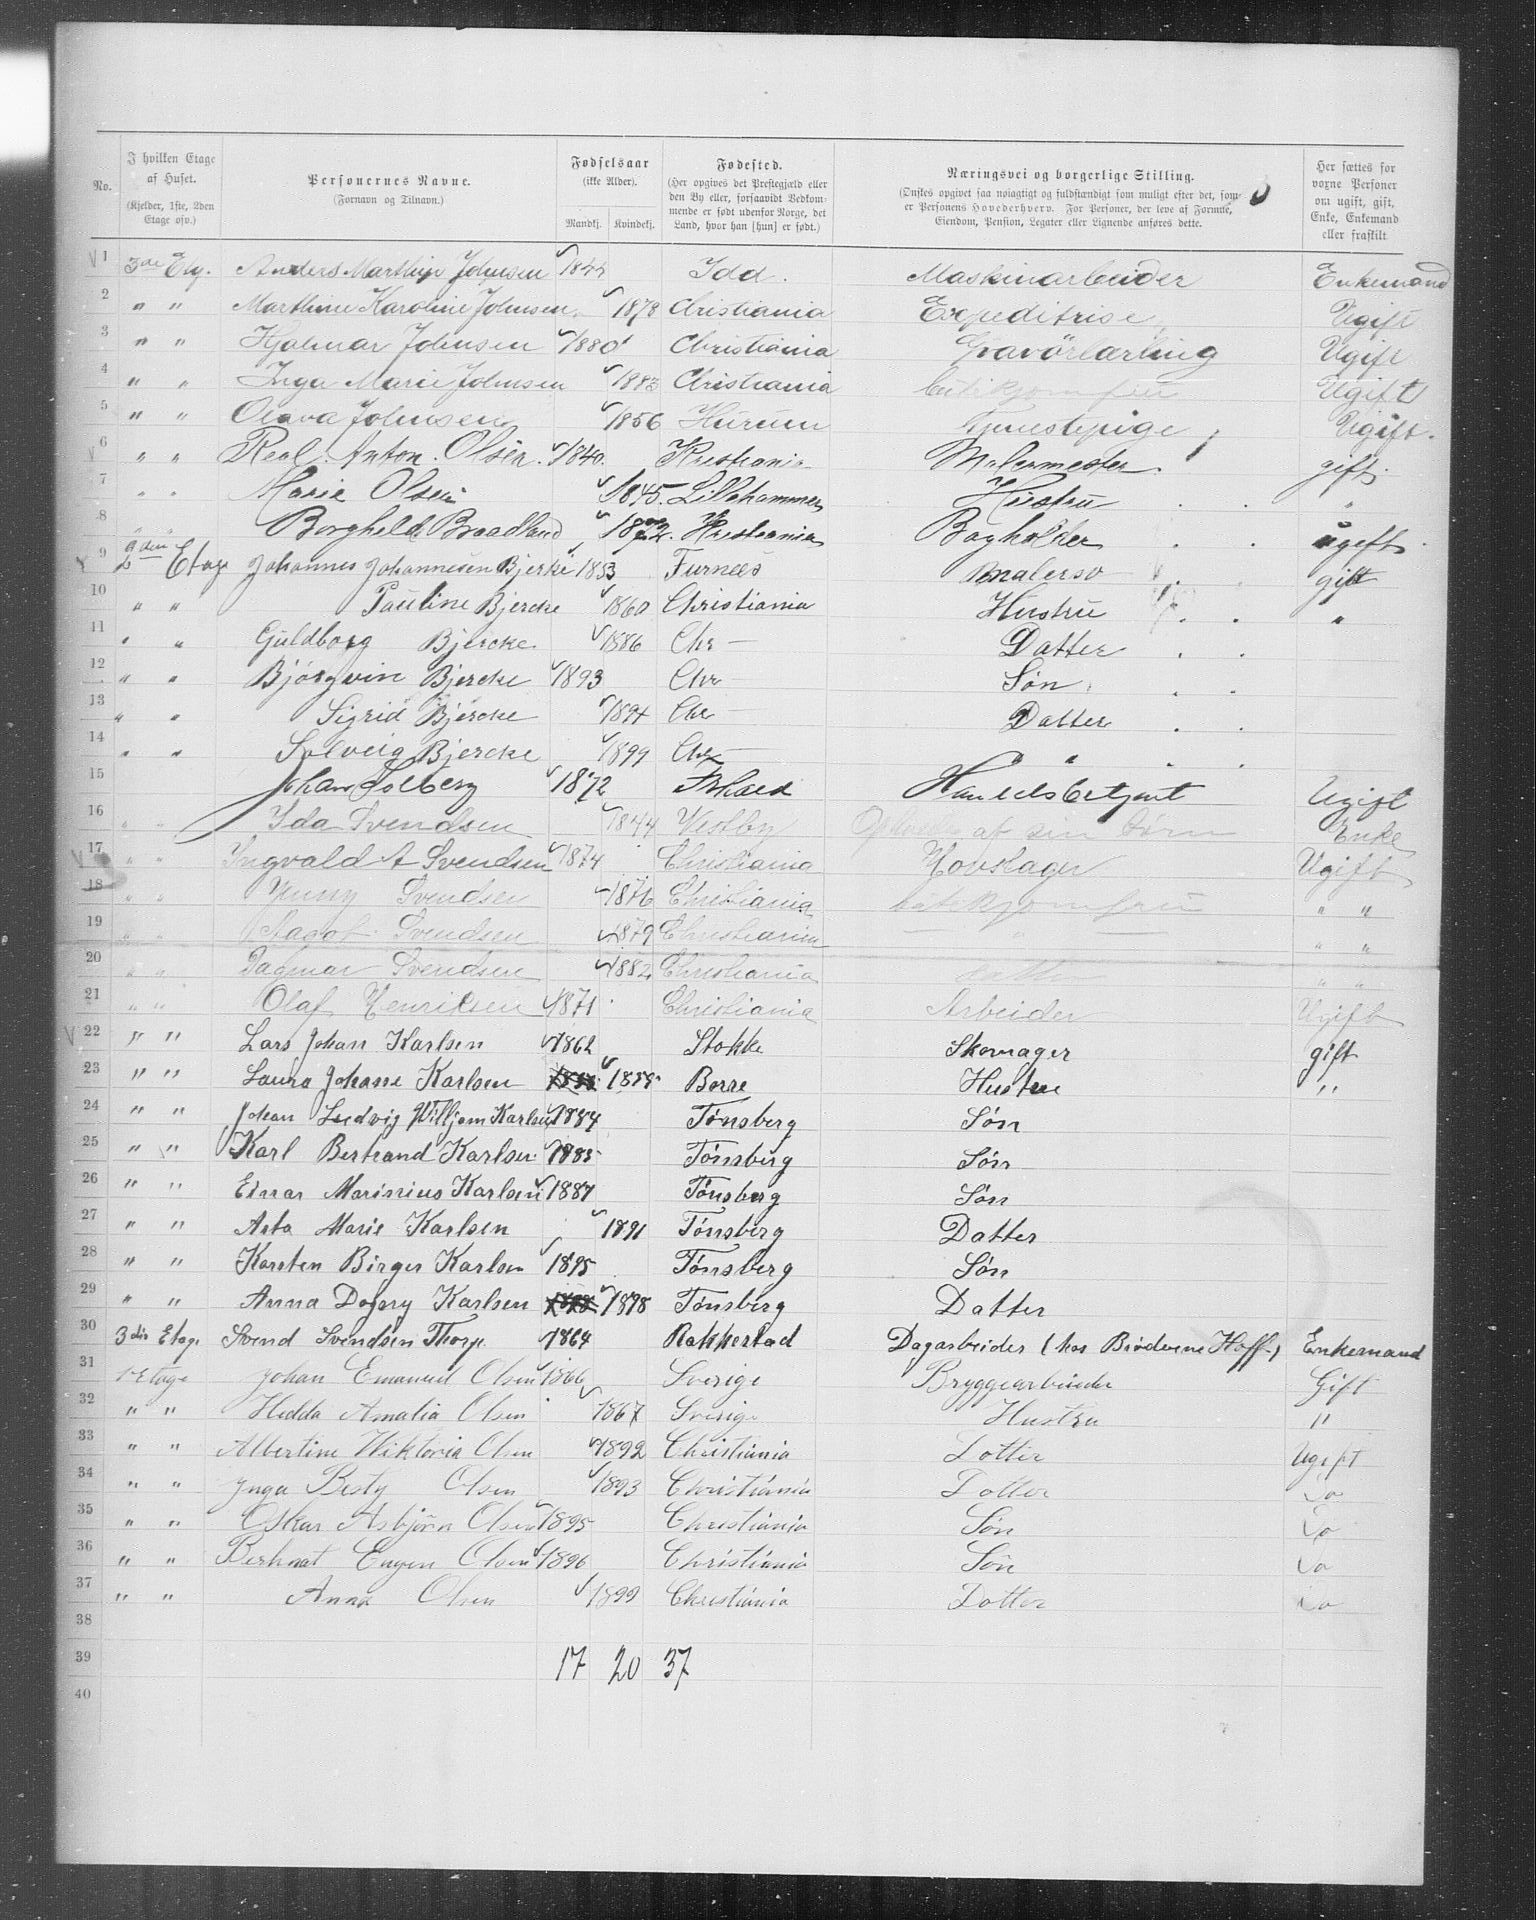 No. | I hvilken Etage af Huset. (Kjelder, 1ste, 2den Etage osv.) | Personernes Navne. (Fornavn og Tilnavn.) | Fødselsaar (ikke Alder). Mandkj. Kvindekj. | Fødested. (Her opgives det Prestegjæld eller den By eller, forsaavidt Vedkommende er født udenfor Norge, det Land, hvor han [hun] er født.) | Næringsvei og borgerlige Stilling. (Ønskes opgivet saa nøiagtigt og fuldstændigt som muligt efter det, som er Personens Hovederhverv. For Personer, der leve af Formue, Eiendom, Pension, Legater eller Lignende anføres dette. | Her sættes for voxne Personer om ugift, gift, Enke, Enkemand eller fraskilt
1 3die Etg. Anders Marthin Johnsen 1844 Idd. Maskinarbeider Enkemand
2 " " Marthine Karoline Johnsen 1878 Christiania Expeditrise Ugift
3 " " Hjalmar Johnsen 1880 Christiania Gravörlærling Ugift
4 " " Inga Marie Johnsen 1883 Christiania butikjomfru Ugift
5 " " Olava Johnsen 1856 Hurum Tjenestepige Ugift.
6 " " Reol. Anton. Olsen. 1840. Kristiania Malermester. gift.
7 " " Marie Olsen 1845. Lillehammer Hustru "
8 " " Borghild Braadland 1872. Kristiania Bogholder ugift
9 2den Etage Johannes Johannesen Bjerke 1853 Furnes Malersv gift
10 " " Pauline Bjercke 1860 Christiania Hustru "
11 " " Guldborg Bjercke 1886 Chr — Datter
12 " " Bjørgvin Bjercke 1893 Chr Søn
13 " " Sigrid Bjercke 1894 Chr — Datter
14 " " Solveig Bjercke 1899 Chr — " "
15 Johan Solberg 1872 Handelsbetjent Ugift
16 " " Ida Svendsen 1844 Vestby af sin børn Enke
17 " " Ingvald A Svendsen 1874 Christiania Hovslager Ugift
18 " " Jenny Svendsen 1876 Christiania butikjomfru " "
19 " " Aagot Svendsen 1879 Christiania — " — " "
20 " " Dagmar Svendsen 1882 Christiania " "
21 " " Olaf Henriksen 1871 Christiania Arbeider Ugift
22 " " Lars Johan Karlsen 1862 Stokke Skomager gift
23 " " Laura Johanne Karlsen 1858 Borre Hustru "
24 " " Johan Ludvig Willjam Karlsen 1884 Tønsberg Søn
25 " " Karl Bertrand Karlsen 1885 Tønsberg Søn
26 " " Einar Marinius Karlsen 1887 Tønsberg Søn
27 " " Asta Marie Karlsen 1891 Tønsberg Datter
28 " " Karsten Birger Karlsen 1895 Tønsberg Søn
29 " " Anna Dagny Karlsen 1898 Tønsberg Datter
30 3die Etage Svend Svendsen Thorp 1864 Rakkestad Dagarbeider (hos Brøderene Hoff) Enkemand
31 1 Etage Johan Emanuel Olsen 1866 Sverige Bryggearbeider Gift
32 " " Hedda Amalia Olsen 1867 Sverige Hustru "
33 " " Albertine Wiktoria Olsen 1892 Christiania Dotter Ugift
34 " " Inga Besty Olsen 1893 Christiania Dotter Do
35 " " Oskar Asbjörn Olsen 1895 Christiania Søn Do
36 " " Berhnat Eugen Olsen 1896 Christiania Søn Do
37 " " Anna Olsen 1899 Christiania Dotter Do
38
39 17 20 37
40